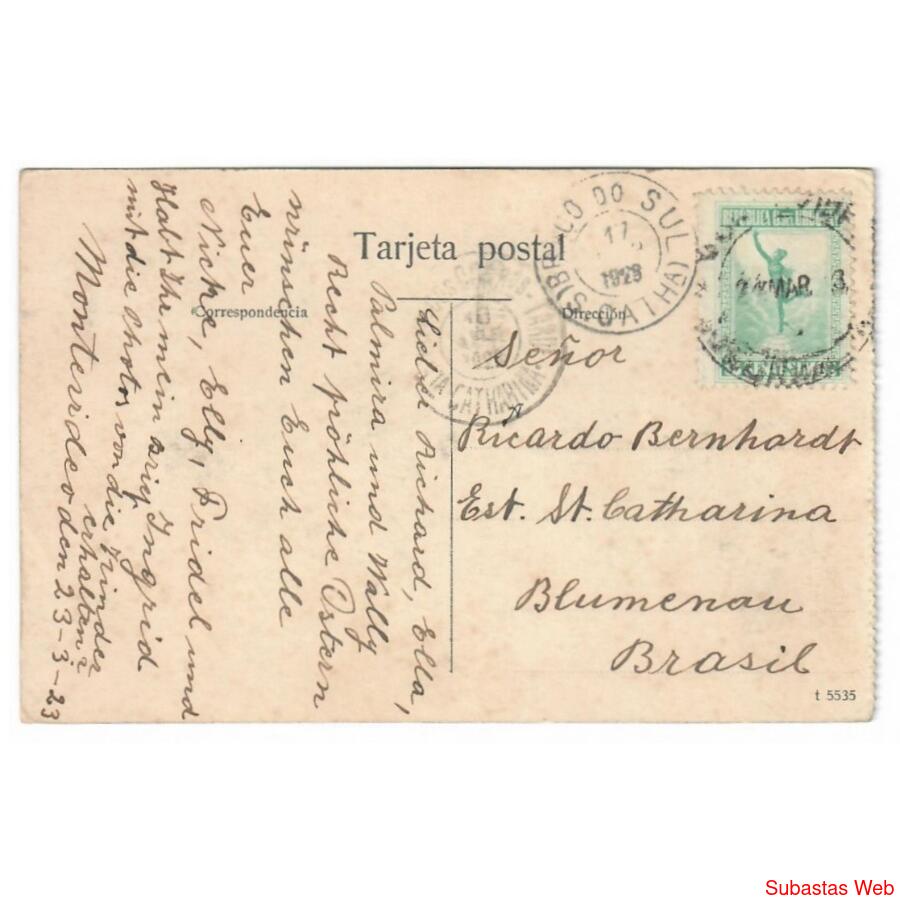 Tarjeta postal
Correspondencia
Dirección
Liebe Richard, Ella,
Palmira und Wally
Recht pöhliche Ostern
wünschen Euch alle
Euer
Nicke, Elly, Fridel und
Habt Ihr mein brief Ingrid
mit die Photos von die Kinder
erhalten?
Montevideo den 23-3-23
Señor
Ricardo Bernhardt
Est. St. Catharina
Blumenau
Brasil
t 5535
DO SUL
17
1923
(S. CATHA)
CATHARINA
MAR 3
Subastas Web